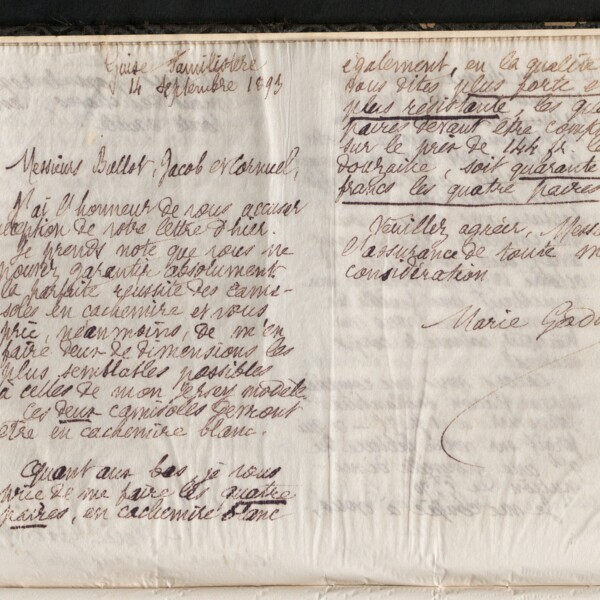 Guise Familistère
14 septembre 1893
Messieurs Ballot, Jacob et Cornuel,
J'ai l'honneur de vous accuser
ception de votre lettre d'hier.
Je prends note que vous ne
pouvez garantir absolument
la parfaite réussite des cami-
soles en cachemire et vous
prie, néanmoins, de m'en
faire deux de dimensions les
plus semblables possibles
à celles de mon jersey modèle.
Ces deux camisoles devront
être en cachemire blanc.
Quant aux bas, je vous
prie de me faire les quatre
paires, en cachemire blanc
également, en la qualité
vous dites plus forte e
plus résistante, les qua
paires devant être comp
sur le prix de 144 fr. la
douzaine, soit quarante
francs les quatre paires
Veuillez agréer, Messi
l'assurance de toute m
considération
Marie God